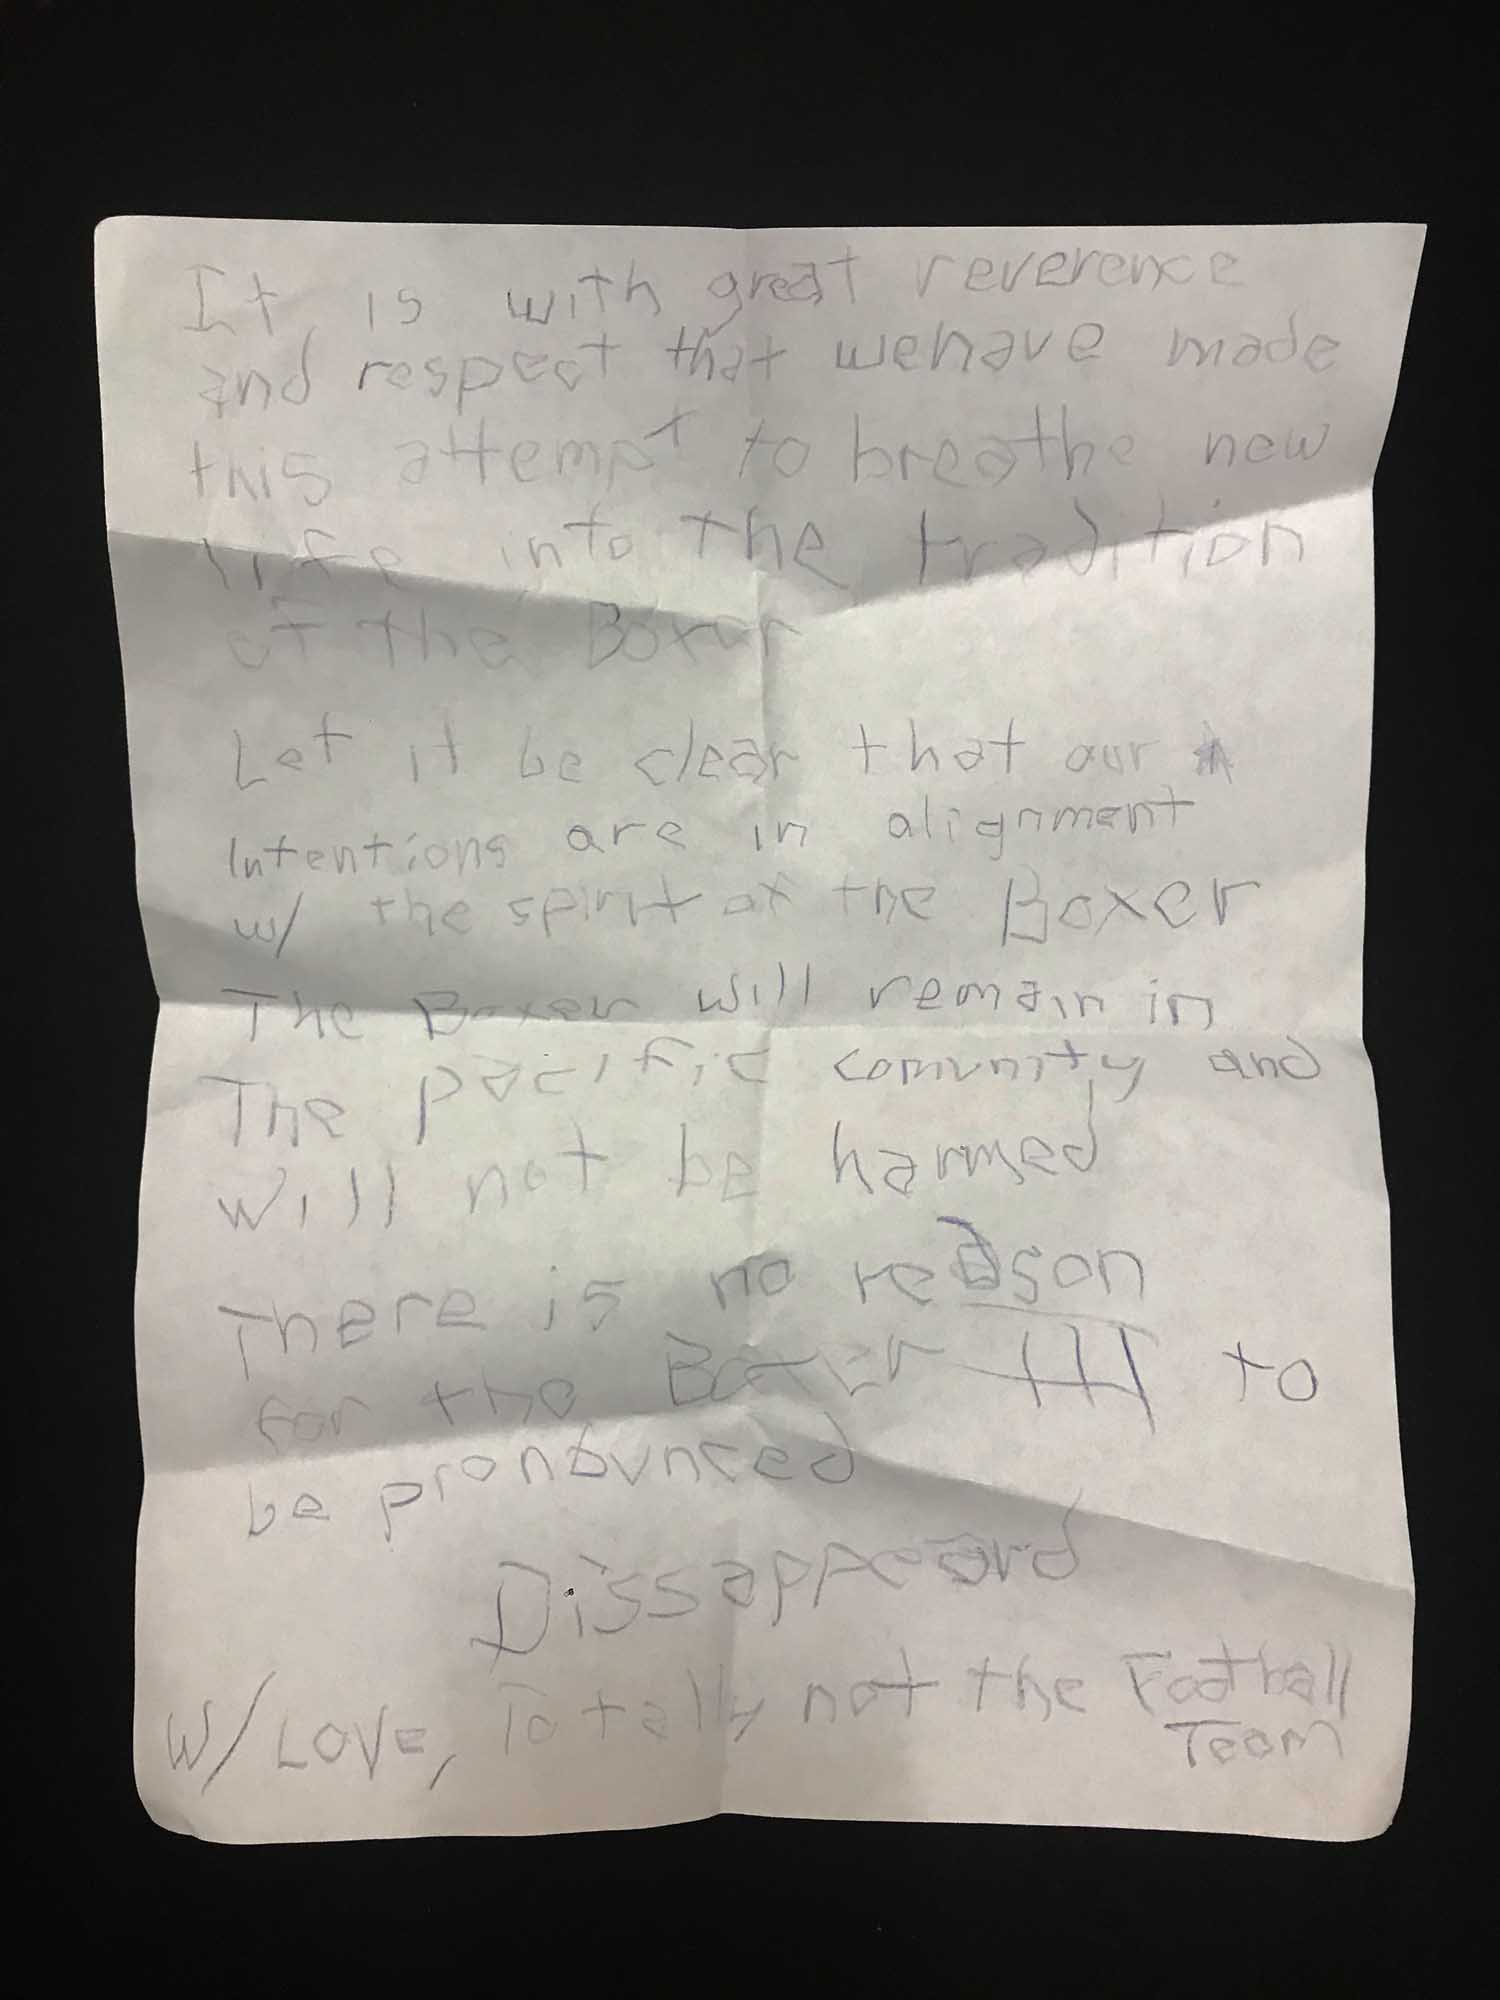 It is with great reverence
and respect that wehave made
this attempt to breathe new
life into the tradition
of the Boxer
Let it be clear that our
Intentions are in alignment
w/ the spirit of the Boxer
The Boxer will remain in
The pacific comunity and
will not be harmed
There is no reason
for the Boxer III to
be pronounced
Dissappeard
W/ LOVe, Totally not the Football
Team